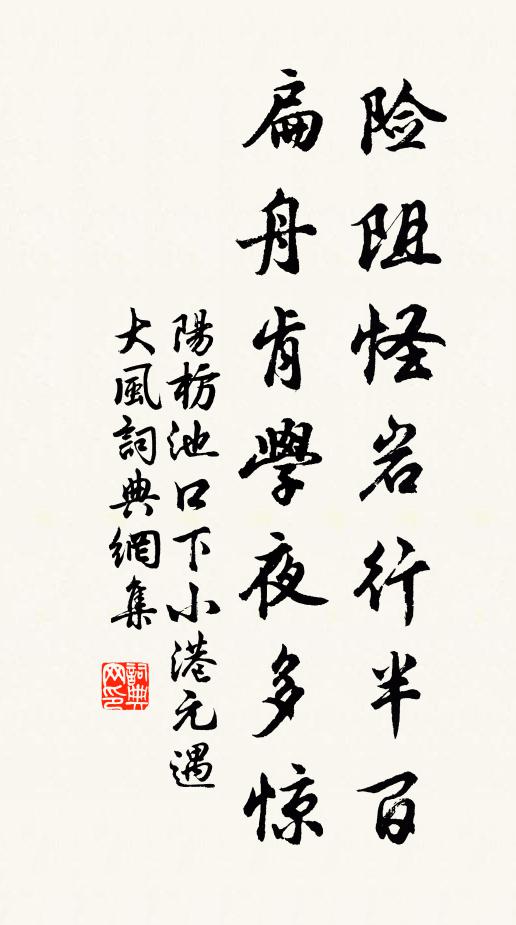 险阻怪岩行半百
扁舟肯學夜多惊
陽枥池口下小港元遇
大風詞典網集
詞典網印